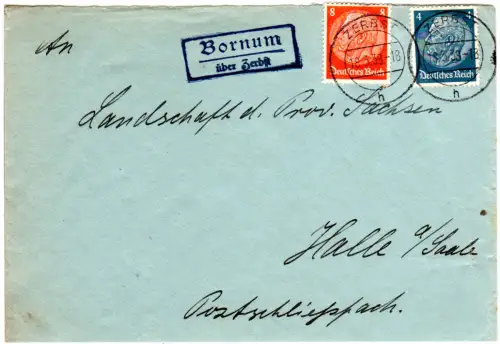 An
Bornum
über Zerbst
8 8
Deutsches Reich
4 4
Deutsches Reich
ZERBST
h
ZERBST
h
Landschaft d. Prov. Sachsen
Halle a/Saale
Postschließfach.